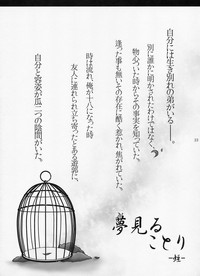 自分には生き別れの弟がいる――。
別に誰かに明かされたわけではなく、
物心ついた時からその事実を知っていた。
逢った事も無いその存在に酷く惹かれ、焦がれていた。
時は流れ、俺が十八になった時
友人に連れられ立ち寄ったとある遊郭に、
自分と容姿が瓜二つの陰間がいた。
夢見る
ことり